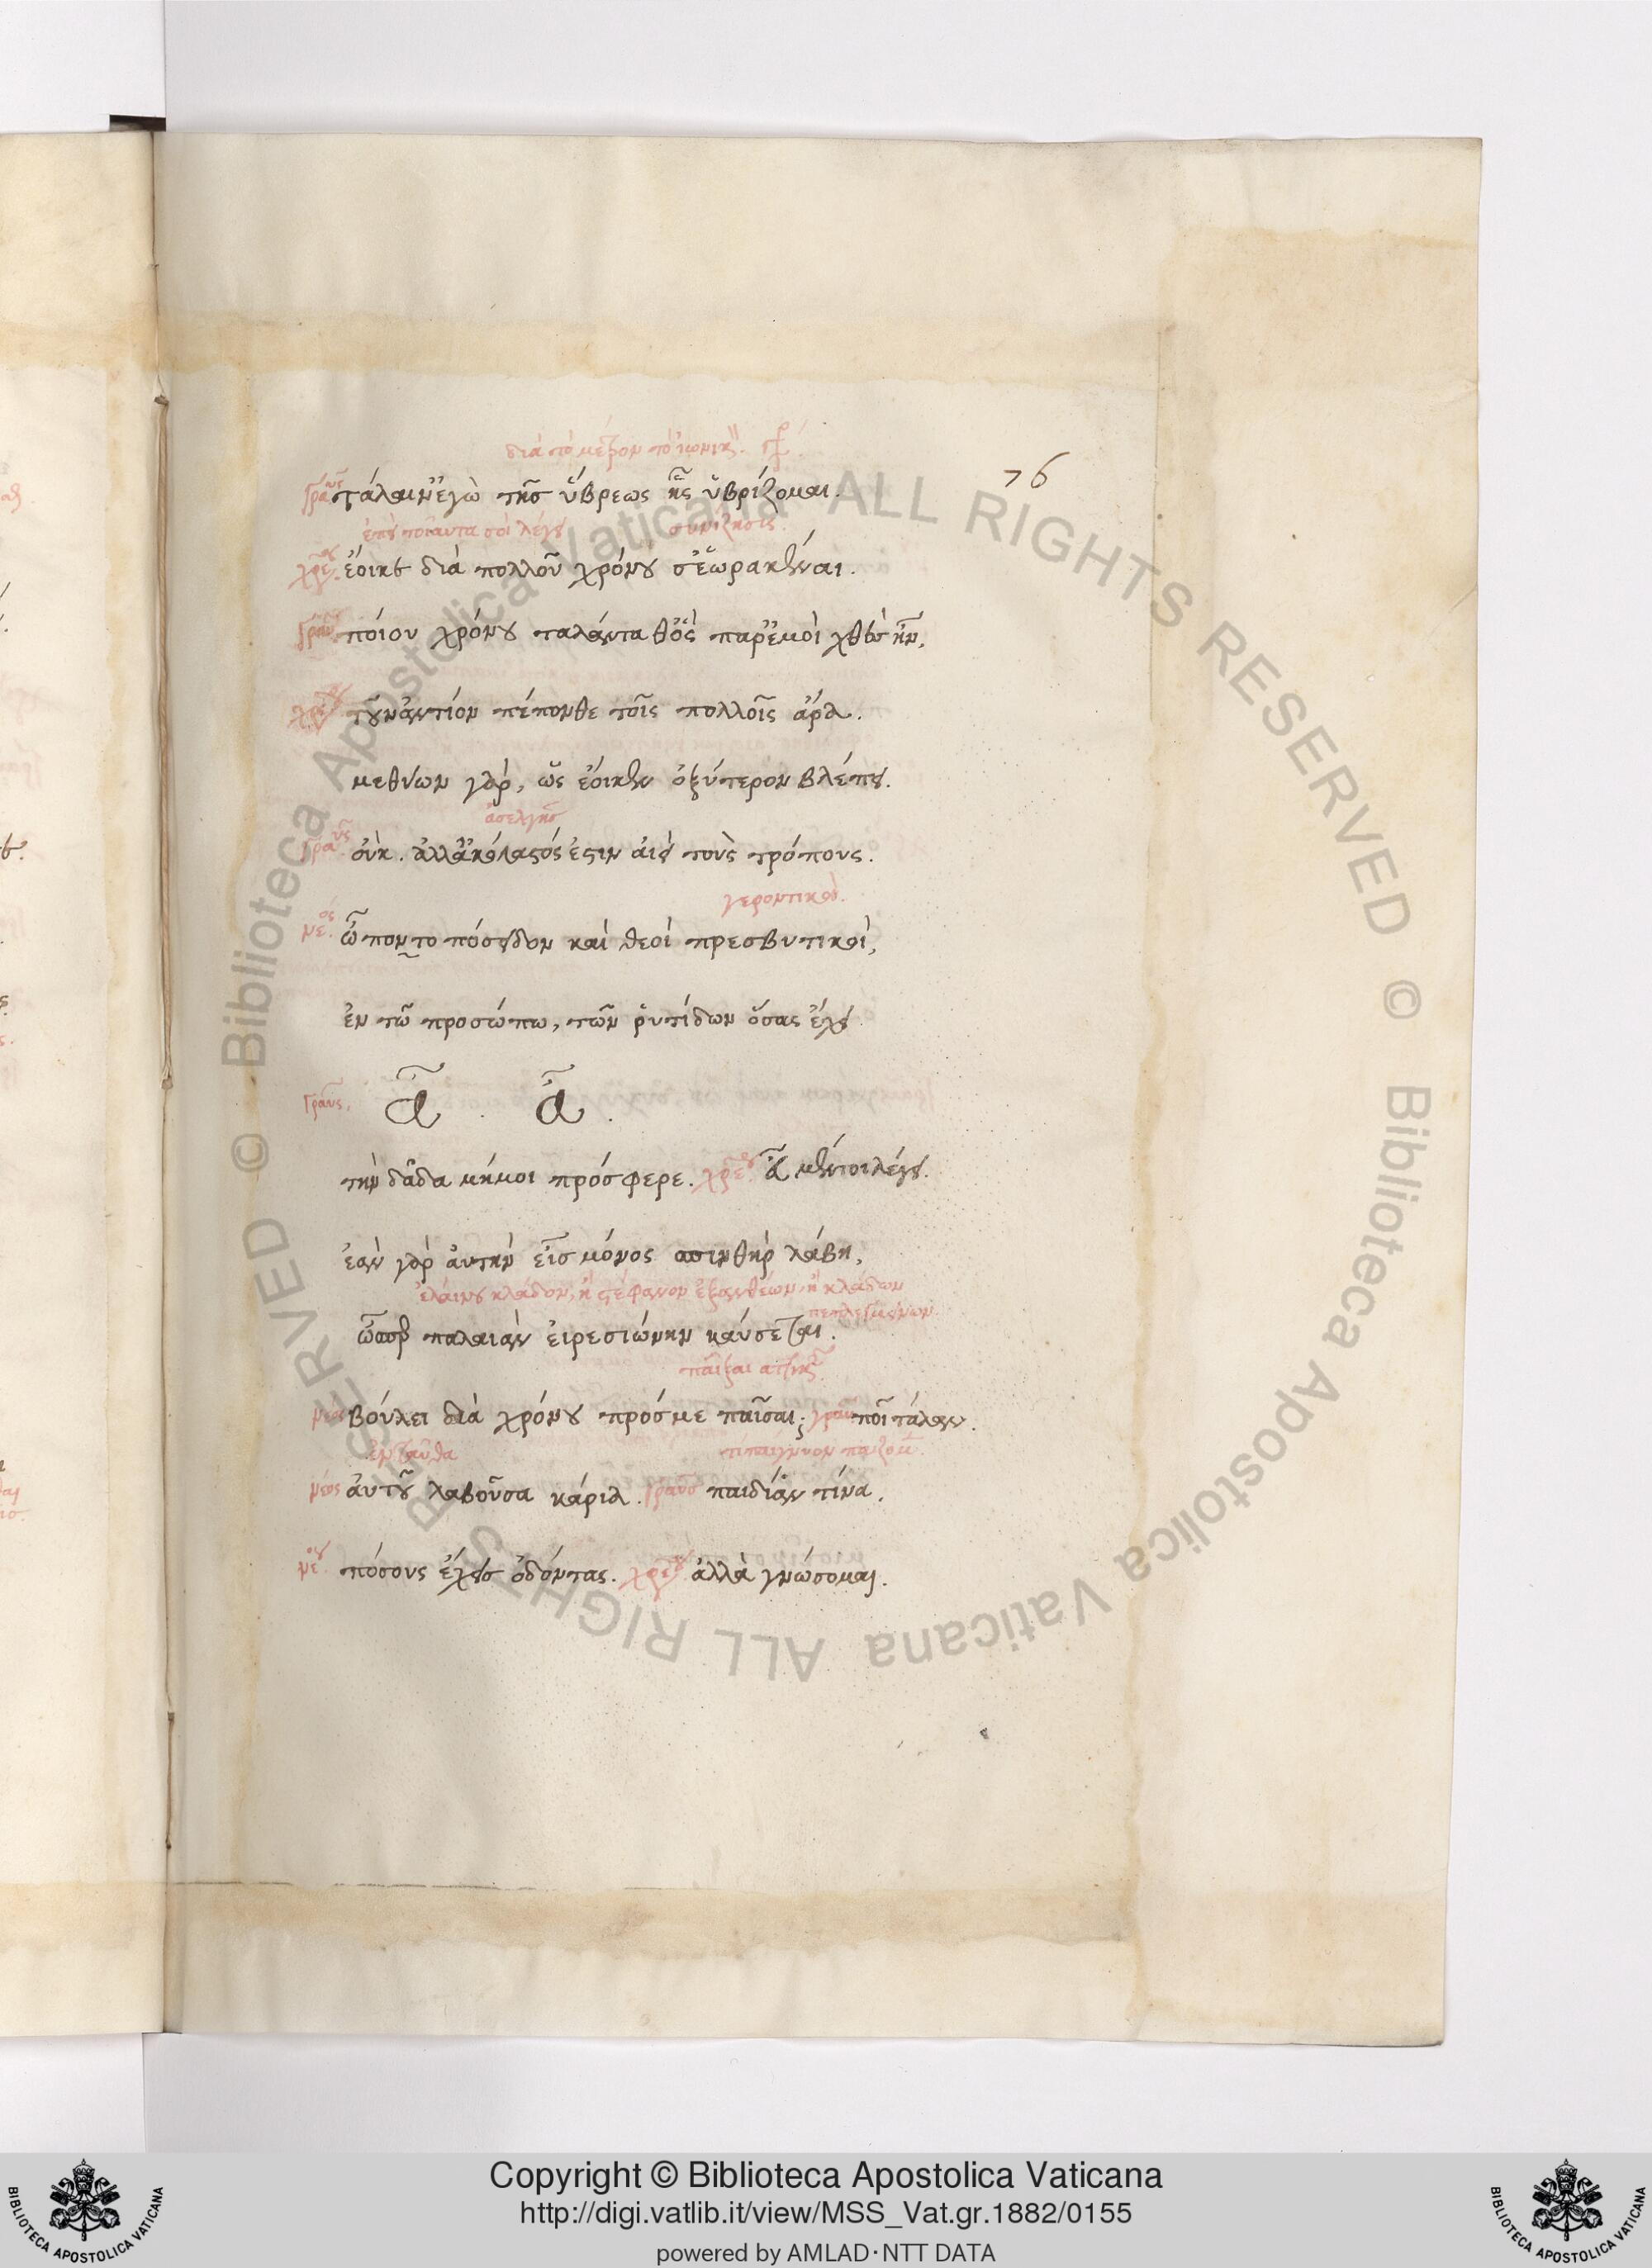 διὰ τὸ μέτρον τὸ ἰωνικόν.
76
γραῦς τάλαιν' ἐγὼ τῆς ὕβρεως ἧς ὑβρίζομαι.
λέγει συνίζησις.
χρε. ἔοικε διὰ πολλοῦ χρόνου σ' ἑωρακέναι.
γραῦς ποίου χρόνου ταλάνταθ' ὃς παρ' ἐμοὶ χθὲς ἦν,
χρε. τοὐναντίον πέπονθε τοῖς πολλοῖς ἄρα.
μεθύων γάρ, ὡς ἔοικεν ὀξύτερον βλέπει.
ἀσελγὴς
γραῦς οὐκ. ἀλλ' ἀκόλαστός ἐστιν ἀεὶ τοὺς τρόπους.
γεροντικοὶ.
νεος. ὦ ποντοπόσειδον καὶ θεοὶ πρεσβυτικοὶ,
ἐν τῶ προσώπω, τῶν ῥυτίδων ὅσας ἔχει
γραῦς. ἆ. ἆ.
τὴν δᾶδα μή μοι πρόσφερε. χρε. εὖ μέντοι λέγει.
ἐὰν γὰρ αὐτὴν εἷς μόνος σπινθὴρ λάβη,
ἐλαίου κλάδον, ἢ στέφανον ἐξ ἀνθέων, ἢ κλάδων
πεπλεγμένων
ὥσπερ παλαιὰν εἰρεσιώνην καύσεται.
παῖξαι
νέος βούλει διὰ χρόνου πρός με παῖσαι; γραῦς ποῖ τάλαν.
ἐνταῦθα τί παίγνιον
νέος αὐτοῦ λαβοῦσα κάρυα. γραῦς παιδιὰν τίνα.
νέ. πόσους ἔχεις ὀδόντας. χρε. ἀλλὰ γνώσομαι.
Copyright © Biblioteca Apostolica Vaticana
http://digi.vatlib.it/view/MSS_Vat.gr.1882/0155
powered by AMLAD·NTT DATA
BIBLIOTECA APOSTOLICA VATICANA
BIBLIOTECA APOSTOLICA VATICANA
© Biblioteca Apostolica Vaticana ALL RIGHTS RESERVED © Biblioteca Apostolica Vaticana ALL RIGHTS RESERVED